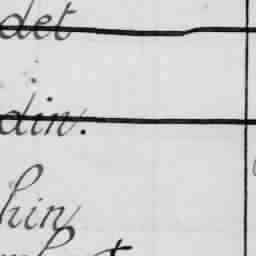 det
din.
hin